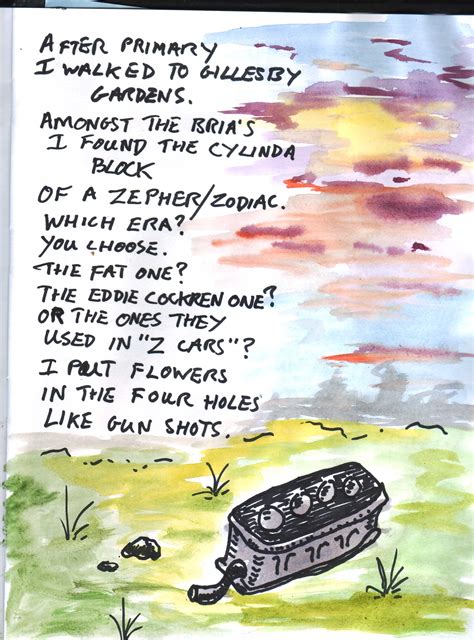 AFTER PRIMARY
I WALKED TO GILLESBY
GARDENS.
AMONGST THE BRIA'S
I FOUND THE CYLINDA
BLOCK
OF A ZEPHER/ZODIAC.
WHICH ERA?
YOU CHOOSE.
THE FAT ONE?
THE EDDIE COCKREN ONE?
OR THE ONES THEY
USED IN "Z CARS"?
I PUT FLOWERS
IN THE FOUR HOLES
LIKE GUN SHOTS.